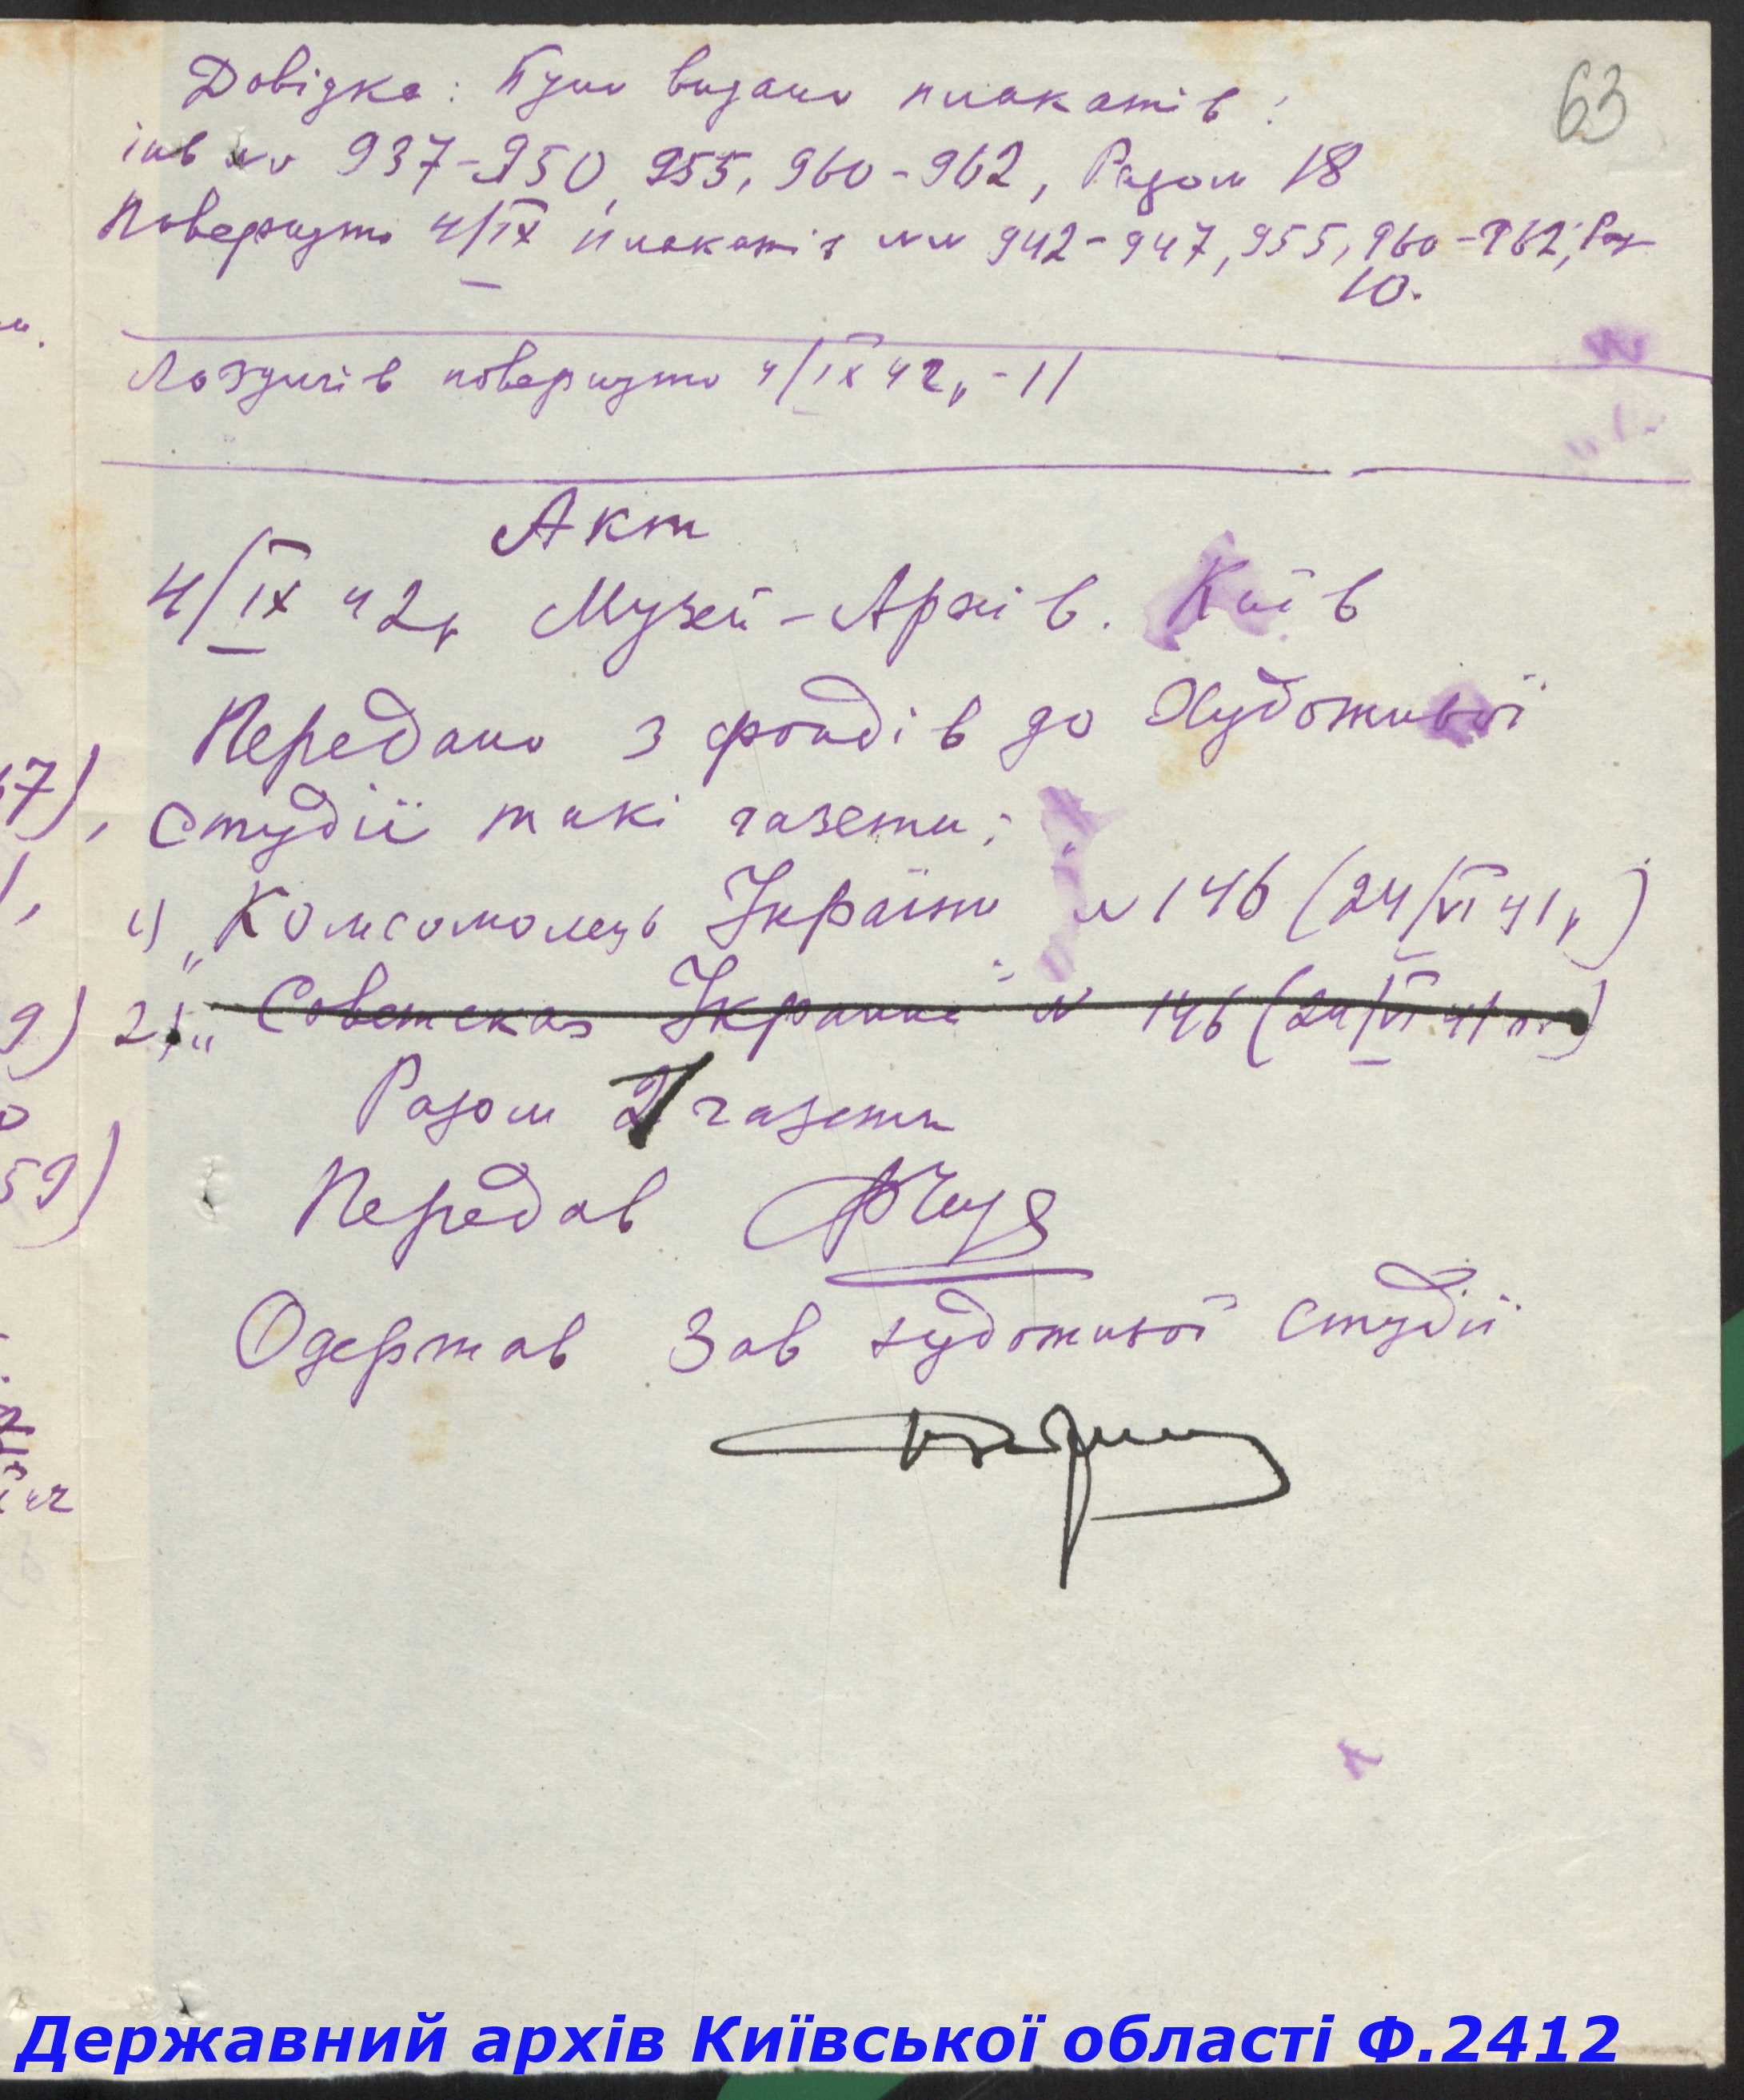 63
Довідка: Було видано плакатів:
інв №№ 937-950, 955, 960-962, Разом 18
Повернуто 4/IX плакатів №№ 942-947, 955, 960-962; Раз
10.
Лозунгів повернуто 4/IX 42р - 11
Акт
4/IX 42р Музей-Архів. Київ
Передано з фондів до Художньої
студії такі газети:
1) „Комсомолець Україны" № 146 (24/VI 41р)
2) „Советская Украина" № 146 (24/VI 41 р.)
Разом 1 газети
Передав
Одержав Зав художньої студії
7),
9)
59)
Державний архів Київської області Ф.2412